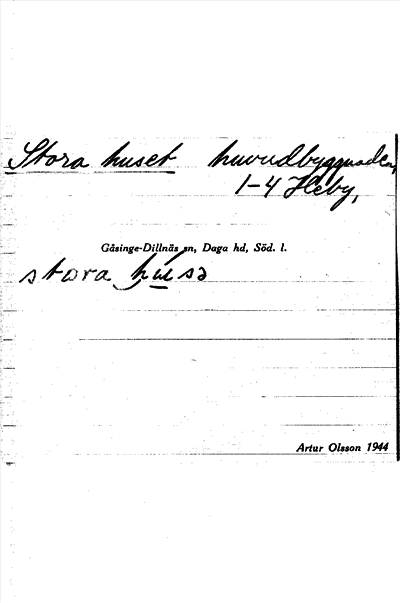 Stora huset huvudbyggnaden,
1-4 Heby,
Gåsinge-Dillnäs sn, Daga hd, Söd. l.
stora husə
Artur Olsson 1944